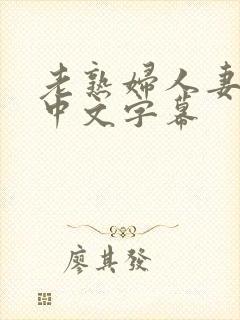 老熟婦人妻
中文字幕
廖其發